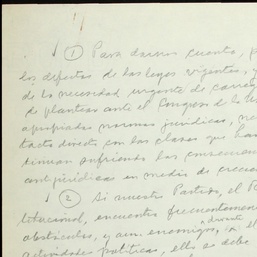 ① Para darnos cuenta, p
los defectos de las leyes vigentes, y
de la necesidad urgente de correg
de plantear ante el Congreso de la U
apropiadas normas jurídicas, ne
tacto directo con las clases que han
tinuan sufriendo las consecuen
antijurídicas en medio de crecien
② Si nuestro Partido, el P
litacional, encuentra frecuentemen
obstáculos, y aun, enemigos, 
actividades políticas, ello se debe